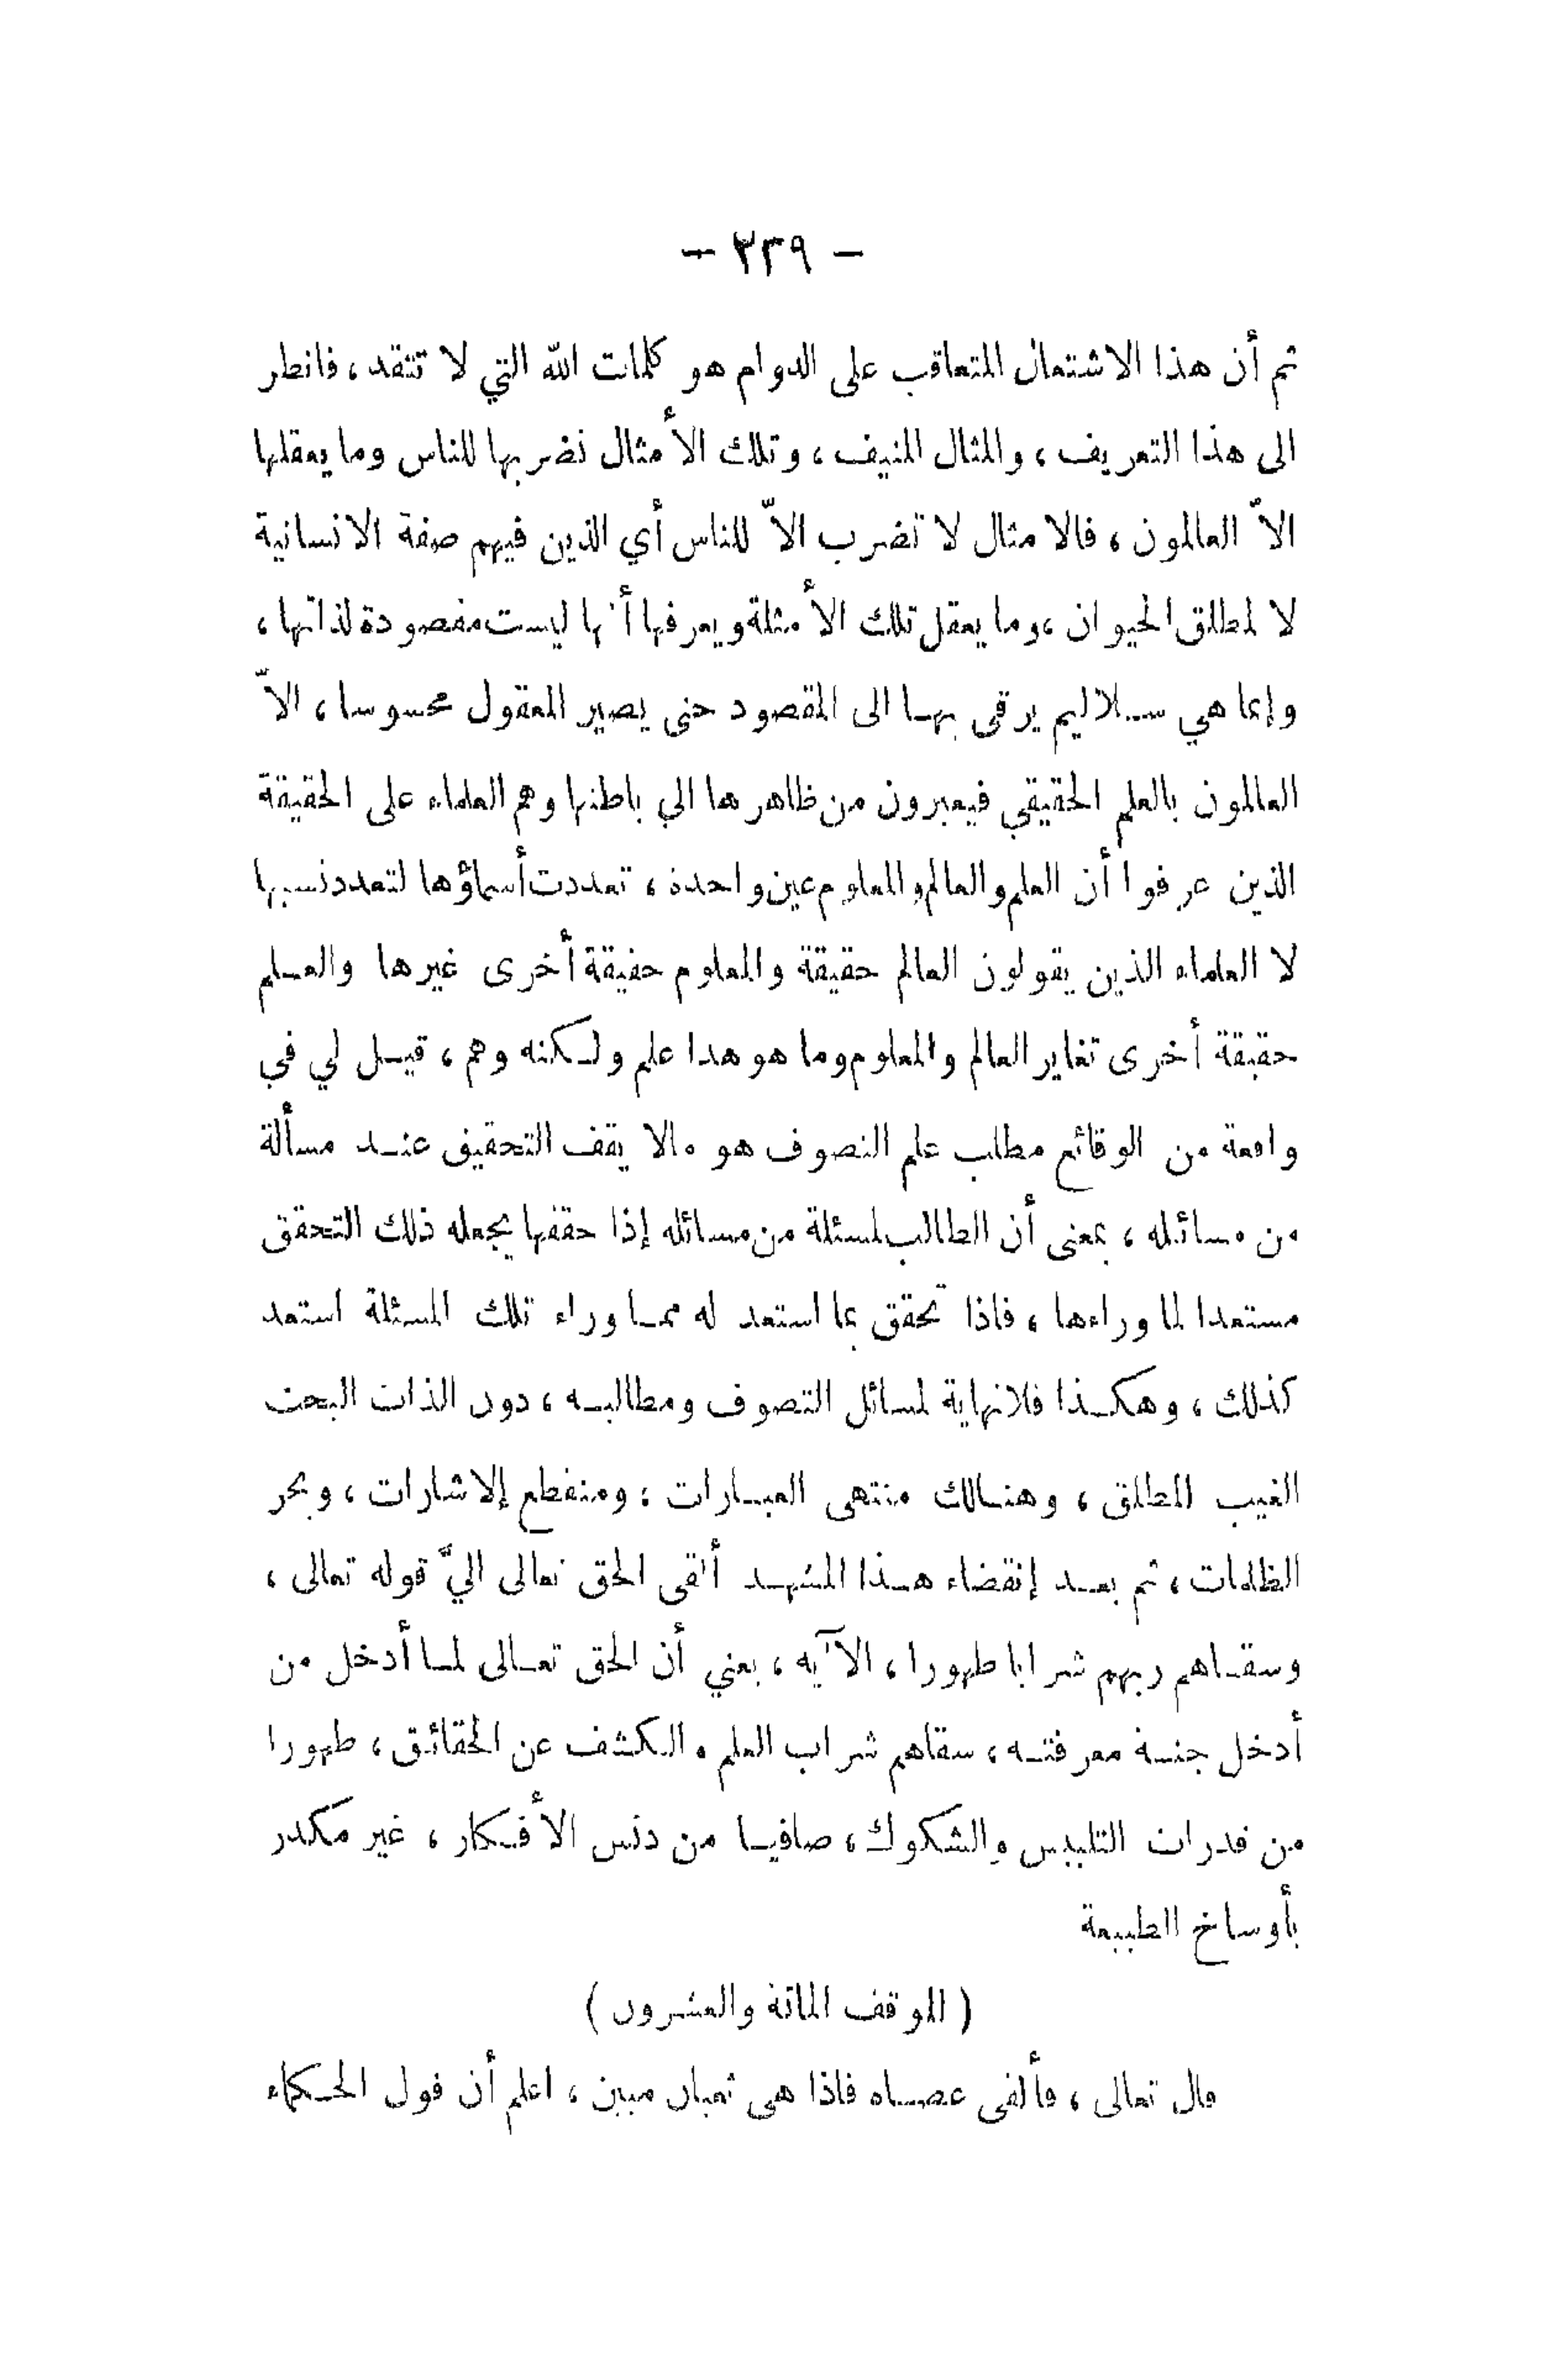 - ٢٣٩ -
ثم أن هذا الاشتعال المتعاقب على الدوام هو كلمات الله التي لا تنقد، فانظر
الى هذا التعريف، والمثال المنيف، وتلك الأمثال نضربها للناس وما يعقلها
الاّ العالمون، فالامثال لا تضرب الاّ للناس أي الذين فيهم صفة الانسانية
لا لمطلق الحيوان، وما يعقل تلك الأمثلة ويعرفها أنها ليست مقصودة لذاتها،
وإنما هي سلاليم يرقى بها الى المقصود حتى يصير المعقول محسوسا، الاّ
العالمون بالعلم الحقيقي فيعبرون من ظاهرها الي باطنها وهم العلماء على الحقيقة
الذين عرفوا أن العلم والعالم والمعلوم عين واحدة، تعددت أسماؤها لتعدد نسبها
لا العلماء الذين يقولون العالم حقيقة والمعلوم حقيقة أخرى غيرها والعلم
حقيقة أخرى تغاير العالم والمعلوم وما هو هذا علم ولكنه وهم، قيل لي في
واقعة من الوقائع مطلب علم التصوف هو مالا يقف التحقيق عند مسألة
من مسائله، بمعنى أن الطالب لمسئلة من مسائله إذا حققها يجعله ذلك التحقق
مستعدا لما وراءها، فاذا تحقق بما استعد له مما وراء تلك المسئلة استعد
كذلك، وهكذا فلانهاية لمسائل التصوف ومطالبه، دون الذات البحت
الغيب المطلق، وهنالك منتهى العبارات، ومنقطع إلاشارات، وبحر
الظلمات، ثم بعد إنقضاء هذا المشهد ألقى الحق تعالى اليَّ قوله تعالى،
وسقاهم ربهم شرابا طهورا، الآيه، يعني أن الحق تعالى لما أدخل من
أدخل جنة معرفته، سقاهم شراب العلم والكشف عن الحقائق، طهورا
من قدرات التلبيس والشكوك، صافيا من دنس الأفكار، غير مكدر
بأوساخ الطبيعة
(الموقف المائة والعشرون)
قال تعالى، فألقى عصاه فاذا هى ثعبان مبين، اعلم أن قول الحكماء